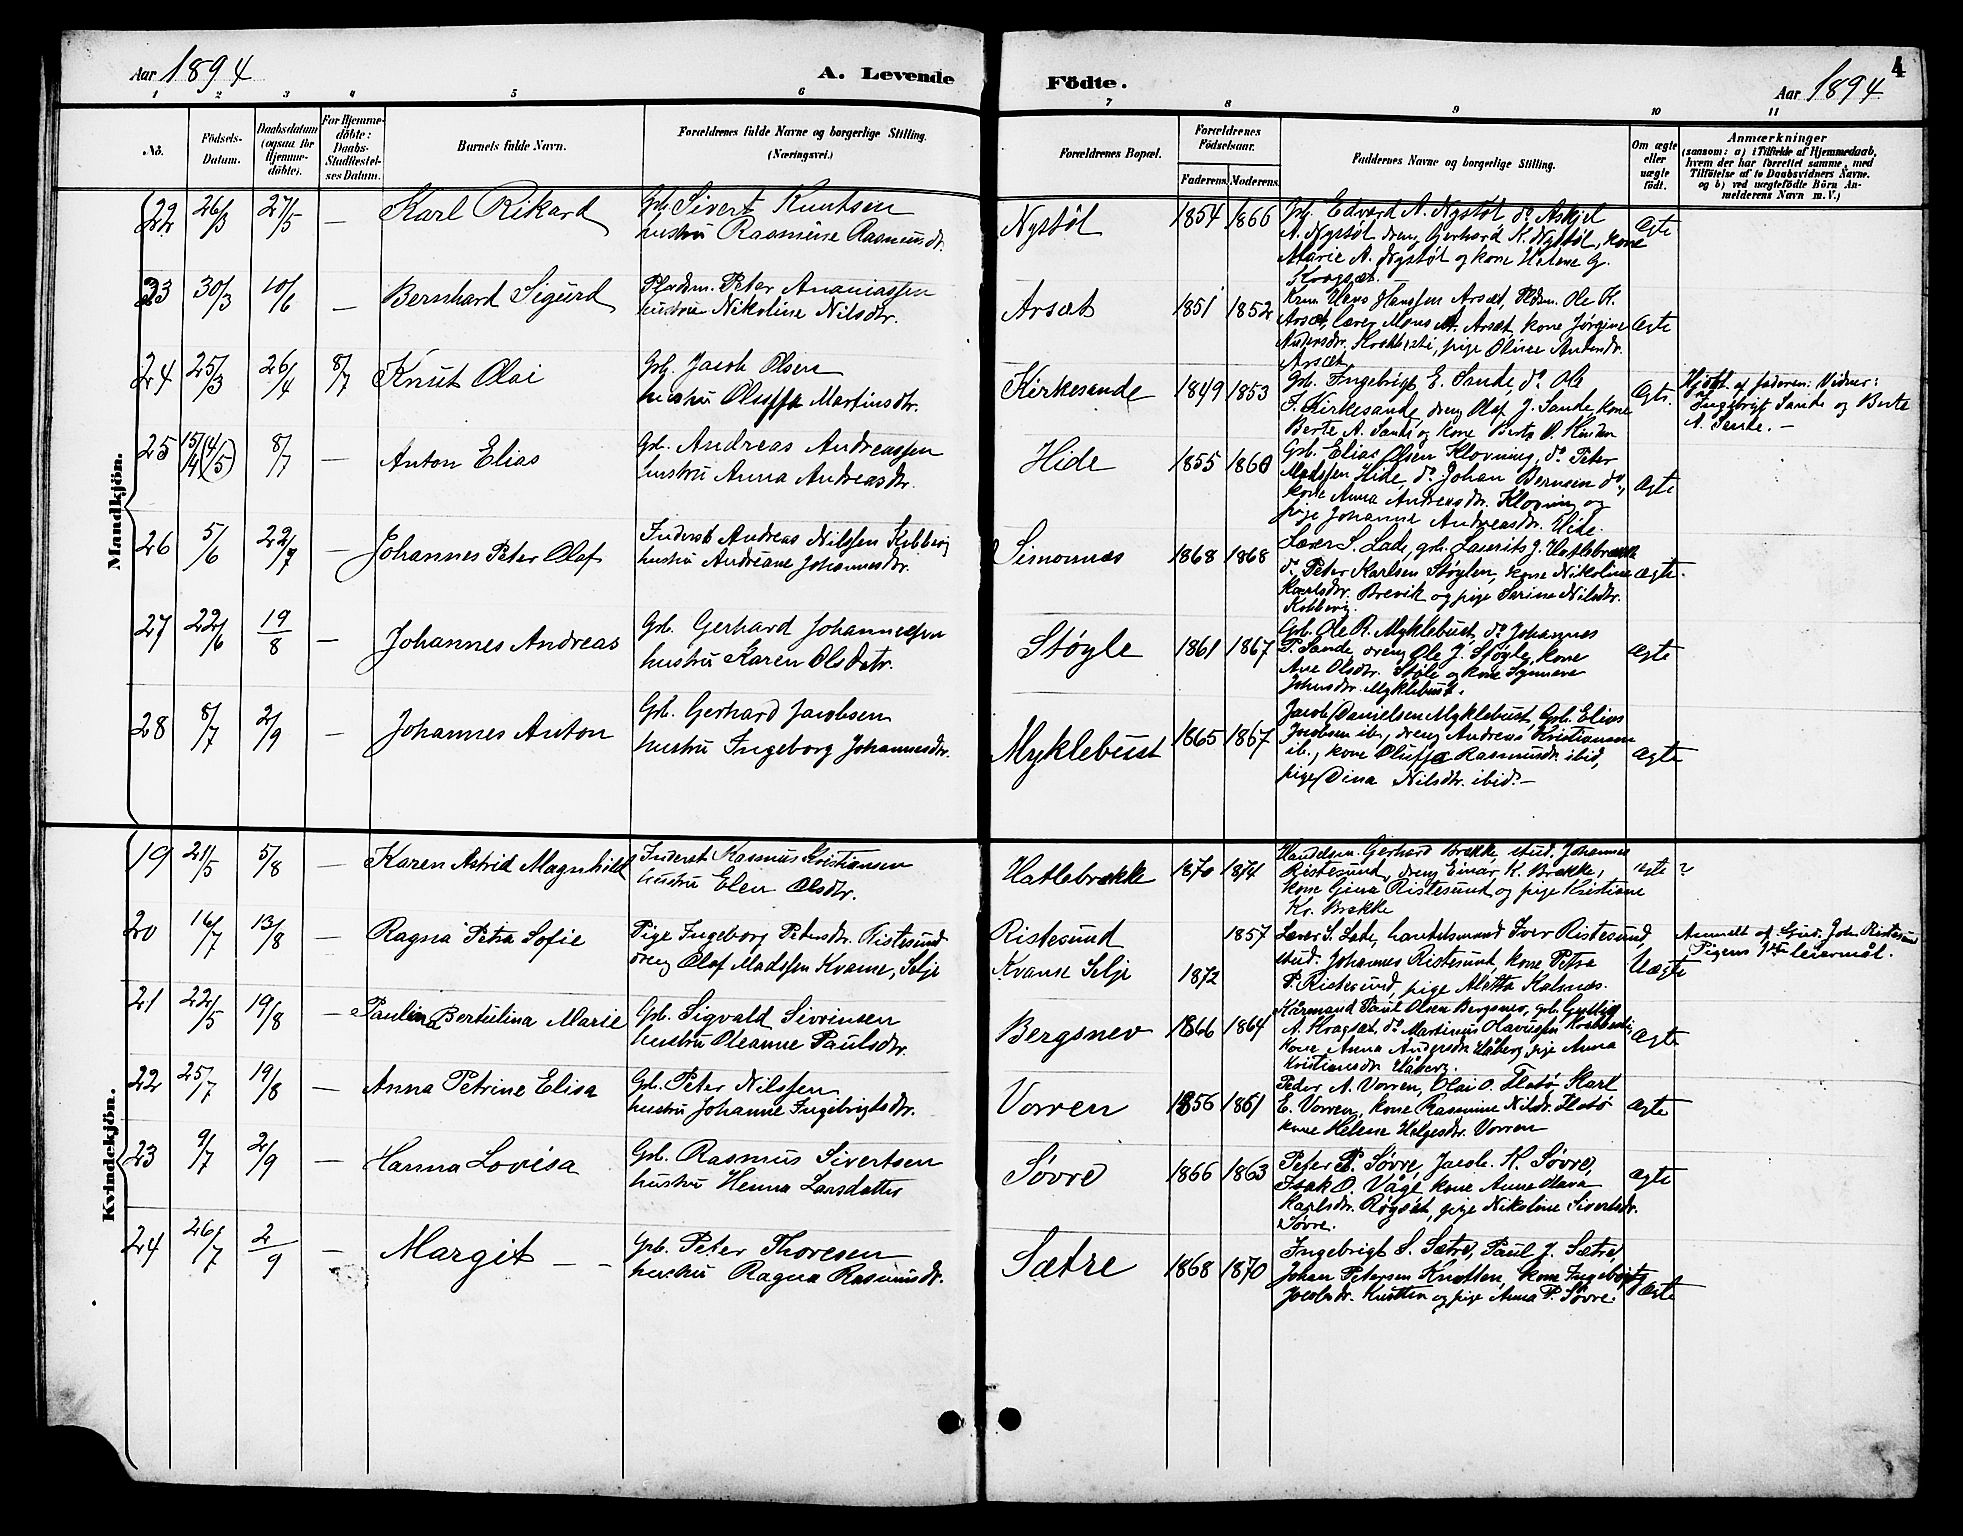 Aar 1894
A. Levende
Födte.
Aar 1894
4
1 2 3 4 5 6 7 8 9 10 11
No.
Födsels-Datum.
Daabsdatum (ogsaa for Hjemme-döbte).
For Hjemme-döbte: Daabs-Stadfæstel-ses Datum.
Barnets fulde Navn.
Forældrenes fulde Navne og borgerlige Stilling.
(Næringsvei.)
Forældrenes Bopæl.
Forældrenes Födselsaar.
Faderens. Moderens.
Faddernes Navne og borgerlige Stilling.
Om ægte eller uægte födt.
Anmærkninger
(saasom: a) i Tilfælde af Hjemmedaab, hvem der har forrettet samme, med Tilföielse af to Daabsvidners Navne. og b) ved uægtefödte Börn An-melderens Navn m. V.)
Mandkjön.
22 26/3 27/5 — Karl Rikard
Gbr. Sivert Knutsen
hustru Rasmine Rasmusdr.
Nystøl 1854 1866
Gbr. Edvard A. Nystøl, do Askjel
A. Nystøl, dreng Gerhard N. Nystøl, kone
Marie A. Nystøl og kone Helene G.
Kragsæt.
ægte
23 30/3 10/6 — Bernhard Sigurd
Peter Ananiassen
hustru Nikoline Nilsdtr.
Arsæt 1851 1852
Hans Hanssen Arsæt, Ole K.
Arsæt, lærer Mons A. Arsæt, kone Jørgine
Andersdr. pige Oline Andersdr.
Arsæt
ægte
24 25/3 26/4 8/7 Knut Olai
Gbr. Jacob Olsen
hustru Oluffa Martinsdtr.
Kirkesande 1849 1853
Gbr. Ingebrigt E. Sande, do Ole
J. Kirkesande, dreng Olaf J. Sande, kone
Berte A. Sande og kone Berte O.
ægte.
Hjdøbt af faderen: Vidner:
Ingebrigt Sande og Berte
A. Sande. —
25 15/4 (14/5) 8/7 — Anton Elias
Gbr. Andreas Andreassen
hustru Anna Andreasdr.
Hide 1855 1860
Gbr. Elias Olsen Klovning, do Peter
Madssen Hide, do Johan Bernsen do,
kone Anna Andreasdr. Klovning og
pige Johanne Andreasdr. Hide.
ægte
26 5/6 22/7 — Johannes Peter Olaf
Inderst Andreas Nilssen Kobberg
hustru Andreane Johannesdr.
Simonnes 1868 1868
Lærer S. Lade, gbr. Laurits J. Hatlebrække
do Peter Karlsen Støylen, kone Nikoline
Karlsdtr. Brevik og pige Serine Nilsdtr.
Kobberg.
ægte.
27 22/6 19/8 — Johannes Andreas
Gbr. Gerhard Johannessen
hustru Karen Olsdatr.
Støyle 1861 1867
Gbr. Ole R. Myklebust, do Johannes
P. Sande, dreng Ole J. Støyle, kone
Ane Olsdtr. Støle og kone Synneve
Johnsdtr. Myklebust.
ægte
28 8/7 2/9 — Johannes Anton
Gbr. Gerhard Jacobsen
hustru Ingeborg Johannesdtr.
Myklebust 1865 1867
Jacob Danielsen Myklebust, Gbr. Elias
Jacobsen ib., dreng Andreas Kristiansen
ib., kone Oluffa Rasmusdtr. ibid,
pige Dina Nilsdtr. ibid. —
ægte
Kvindekjön.
19 21/5 5/8 — Karen Astrid Magnhild
Inderst Rasmus Kristiansen
hustru Elen Olsdtr.
Hatlebrække 1870 1874
Handelsm. Gerhard Brække, stud. Johannes
Ristesund, dreng Einar K. Brække,
kone Gina Ristesund og pige Kristiane
Kr. Brække
ægte ?
20 16/7 13/8 — Ragna Petra Sofie
Pige Ingeborg Petersdtr. Ristesund
dreng Olaf Madssen Kvame, Selje
Ristesund 1857
Kvame Selje 1872
Lærer S. Lade, handelsmand Iver Ristesund,
stud. Johannes Ristesund, kone Petra
P. Ristesund, pige Aletta Kalnæs.
Uægte
Anmeldt af Joh. Ristesund
Pigens 1ste leiermål.
21 22/5 19/8 — Paulina Bertulina Marie
Gbr. Sigvald Sivrinsen
hustru Oleanne Paulsdtr.
Bergsnev 1866 1864
Kårmand Paul Olsen Bergsnev, gbr. Gutlig
A. Kragsæt, do Martinus Olaussen
kone Anna Andersdr. Håberg, pige Anna
Kristiansdr. Håberg.
Ægte
22 25/7 19/8 — Anna Petrine Elisa
Gbr. Peter Nilssen
hustru Johanne Ingebrigtsdtr.
Vorren 1856 1861
Peder A. Vorren, Olai O. Flatø Karl
E. Vorren, kone Rasmine Nilsdr. Flatø
kone Helene Helgesdtr. Vorren
ægte
23 9/7 2/9 — Hanna Lovisa
Gbr. Rasmus Sivertsen
hustru Henna Larsdatter
Søvre 1866 1863
Peter P. Søvre, Jacob K. Søvre,
Isak O. Våge, kone Anne Olava
Karlsdtr. Røysæt, pige Nikoline Sivertsdr.
Søvre.
ægte
24 26/7 2/9 — Margit — —
Gbr. Peter Thoresen
hustru Ragna Rasmusdr.
Sætre 1868 1870
Ingebrigt S. Sætre, Paul J. Sætre,
Johan Petersen Knotten, kone Ingeborg
Jacobsdtr. Knotten og pige Anna P. Søvre.
Ægte